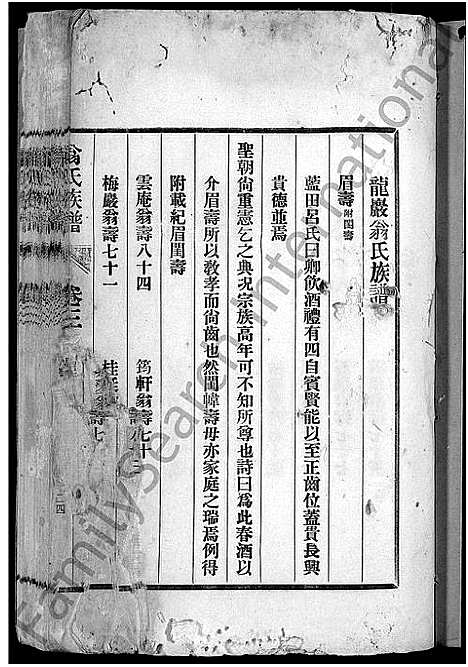 龍巖翁氏族譜
眉壽 附閨壽
藍田呂氏曰鄉飲酒禮有四自賓賢能以至正齒位蓋貴長興
貴德並焉
聖朝尚重憲乞之典况宗族高年可不知所尊也詩曰為此春酒以
介眉壽所以教孝而尚齒也然閨幃壽母亦家庭之瑞焉例得
附載紀眉閨壽
雲庵翁壽八十四 筠軒翁壽七十三
梅巖翁壽七十一 桂 翁壽七
翁氏族譜 卷三
FamilySearch International